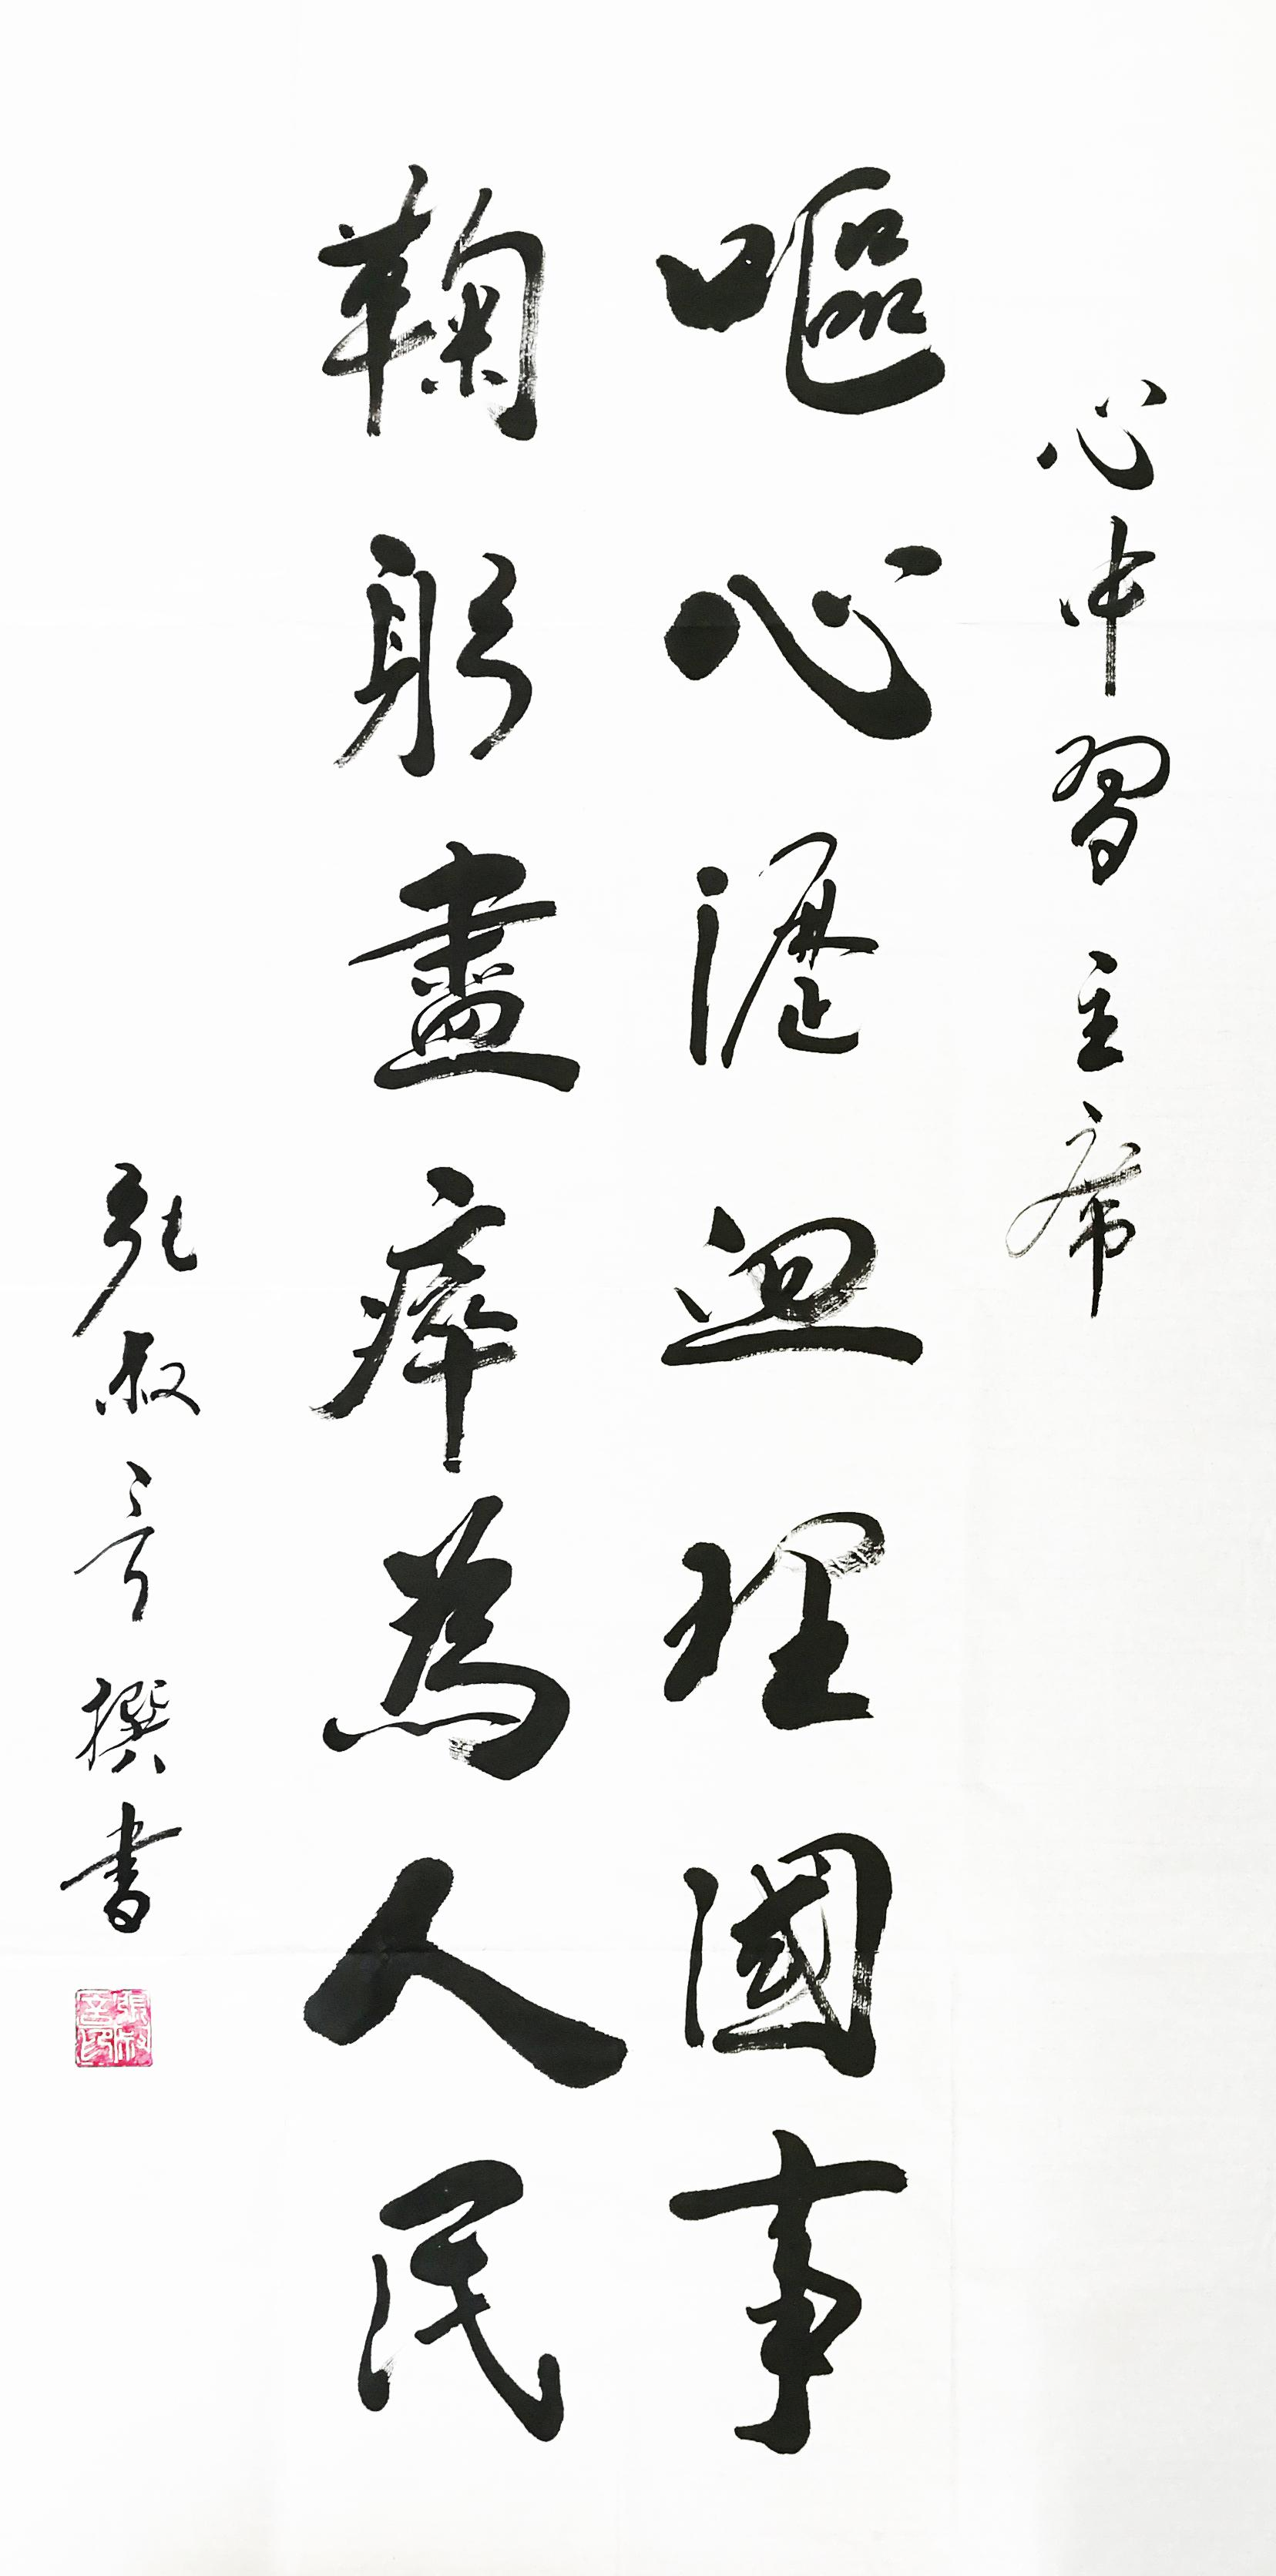 心中習主席
嘔心瀝血理國事
鞠躬盡瘁為人民
張叔言撰書